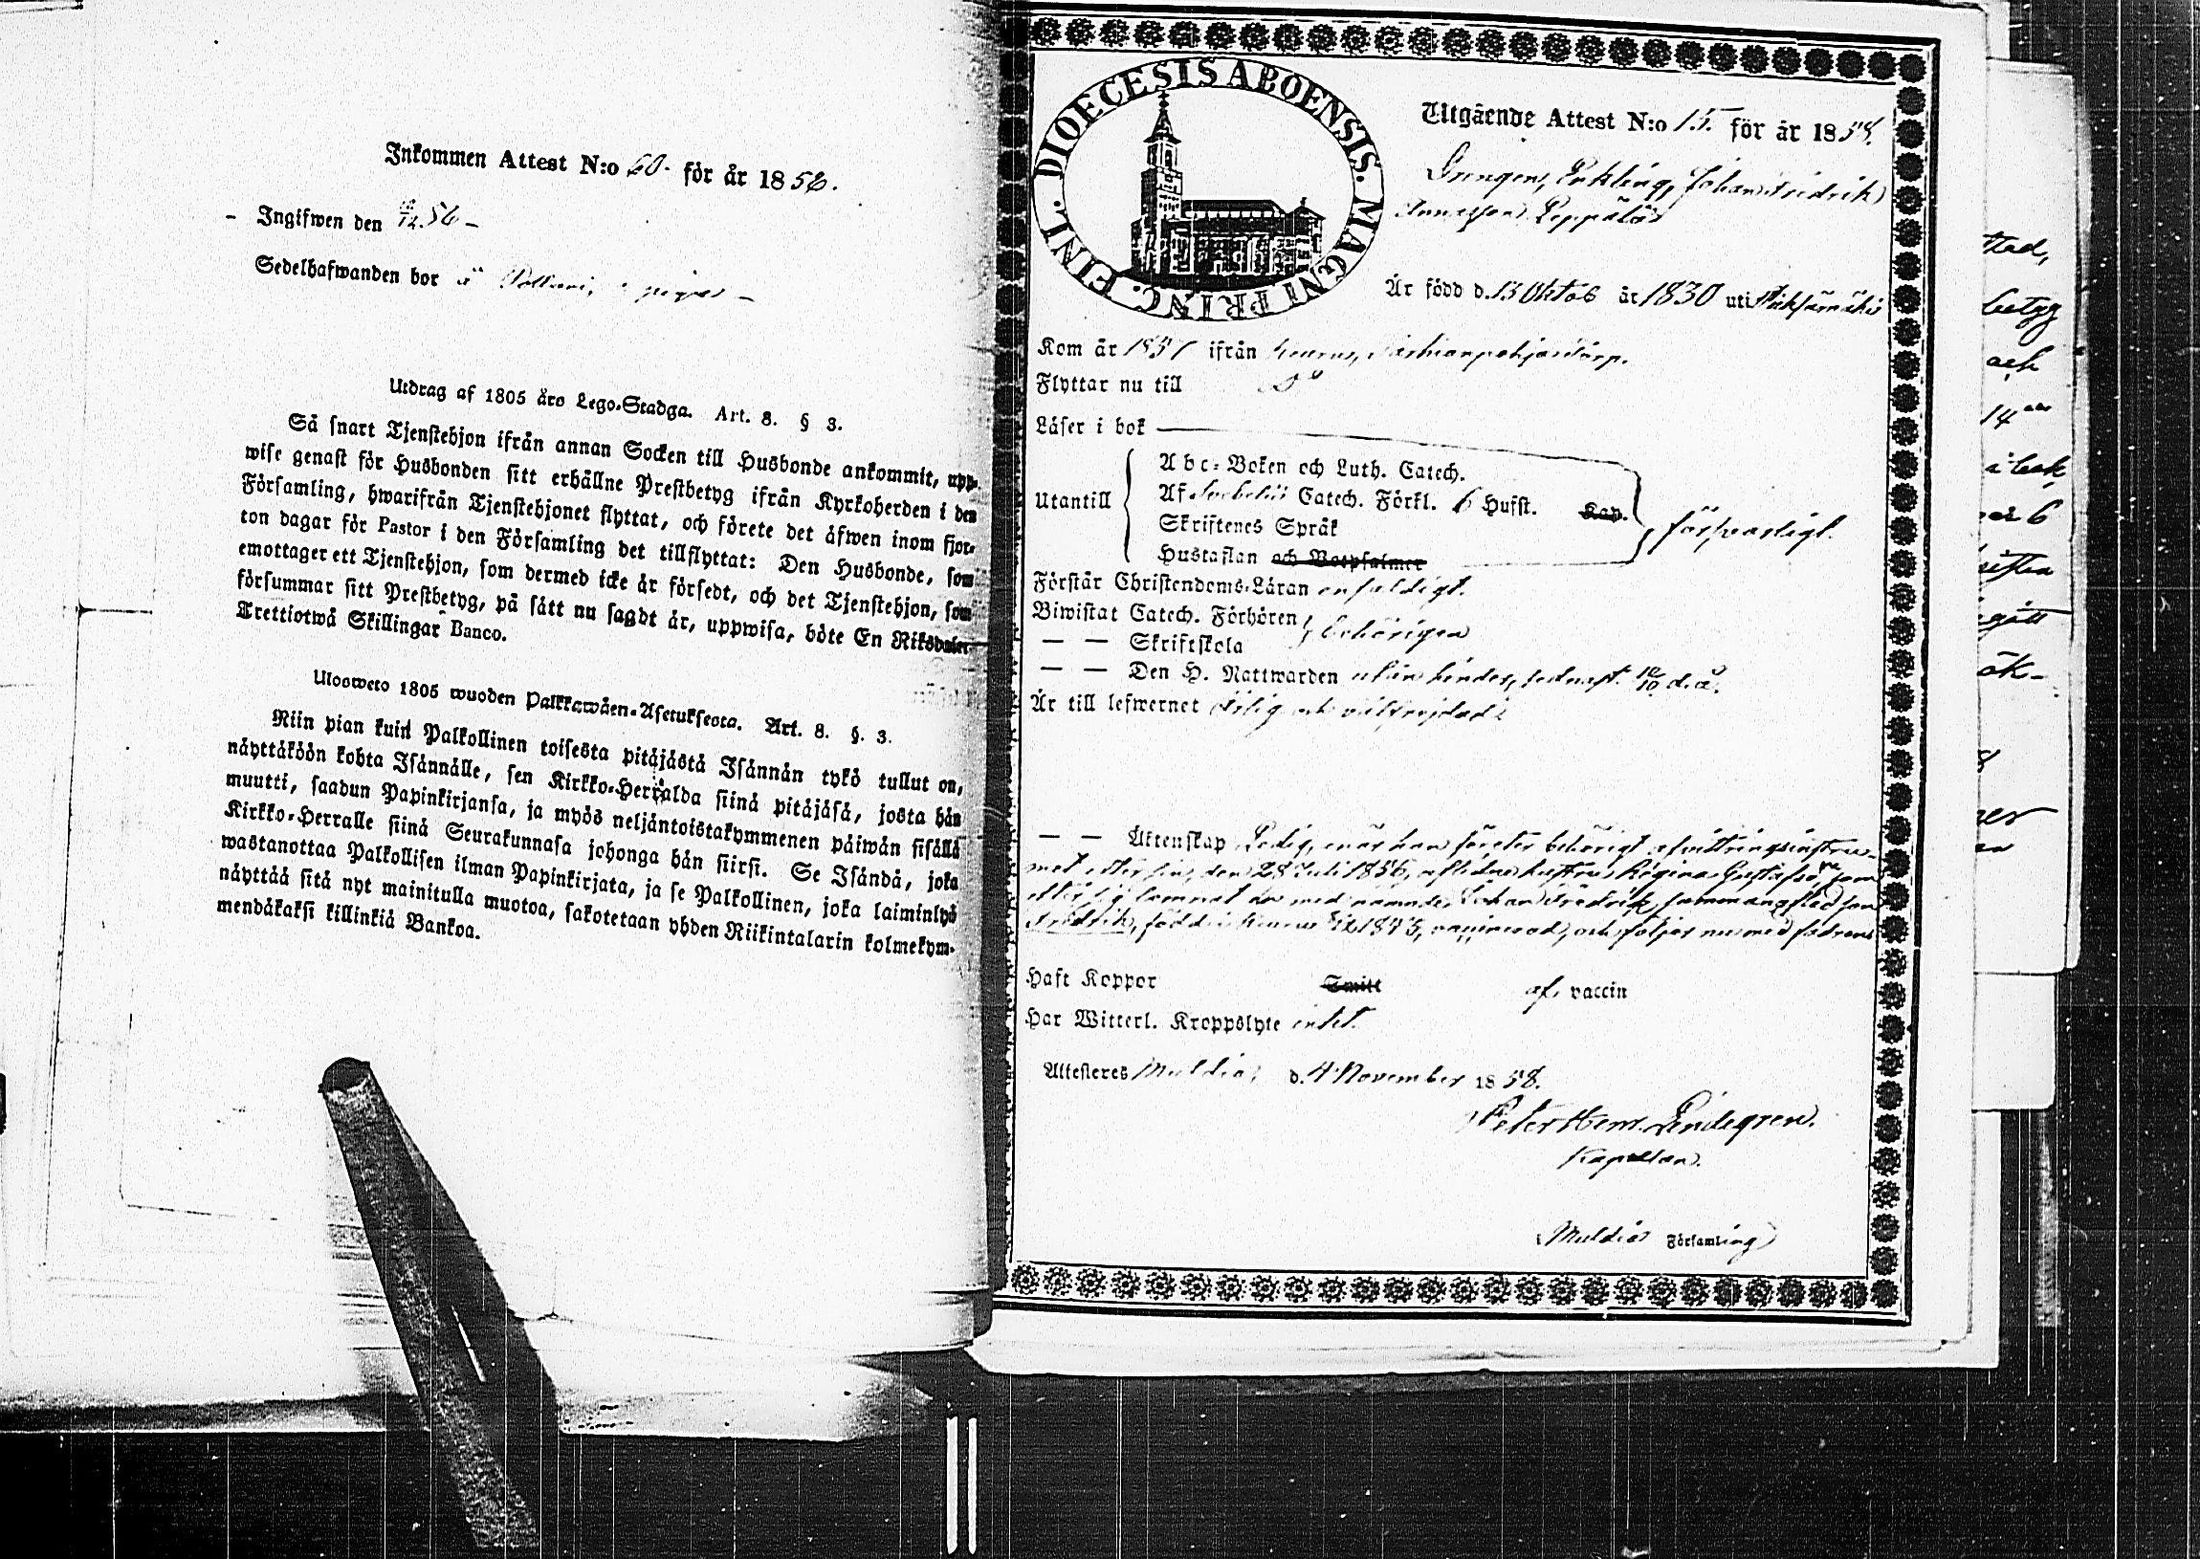 Inkommen Attest N:o 60. för år 1856.
– Ingifwen den 12. 56 –
Sedelhafwanden bor å
Utdrag af 1805 års Lego-Stadga. Art. 8. § 3.
Så snart Tjenstehjon ifrån annan Socken till Husbonde ankommit, upp-
wise genast för Husbonden sitt erhållne Prestbetyg ifrån Kyrkoherden i den
Församling, hwarifrån Tjenstehjonet flyttat, och förete det äfwen inom fjor-
ton dagar för Pastor i den Församling det tillflyttat: Den Husbonde, som
emottager ett Tjenstehjon, som dermed icke är försedt, och det Tjenstehjon, som
försummar sitt Prestbetyg, på sätt nu sagdt är, uppwisa, böte En Riksdaler
Trettiotwå Skillingar Banco.
Ulosweto 1805 wuoden Palkkawäen-Asetuksesta. Art. 8. §. 3.
Niin pian kuin Palkollinen toisesta pitäjästä Isännän tykö tullut on,
näyttäköön kohta Isännälle, sen Kirkko-Herralda siinä pitäjäsä, josta hän
muutti, saadun Papinkirjansa, ja myös neljäntoistakymmenen päiwän sisällä
Kirkko-Herralle siinä Seurakunnasa johonga hän siirsi. Se Isändä, joka
wastanottaa Palkollisen ilman Papinkirjata, ja se Palkollinen, joka laiminlyö
näyttää sitä nyt mainitulla muotoa, sakotetaan yhden Riikintalarin kolmekym-
mendäkaksi killinkiä Bankoa.
DIOECESIS ABOENSIS. MAGNI PRINC. FINL.
Utgående Attest N:o 15. för år 1858.
Drengen, Enkling, Johan Fridrik
Leppälä
Är född d. 13 Oktob år 1830 uti
Kom år 1851 ifrån
Flyttar nu till
Läser i bok
Utantill
Abc-Boken och Luth. Catech.
Af Svebelii Catech. Förkl. 6 Hufst. Kap.
Skriftenes Språk
Hustaflan och Botpsalmer
försvarligt.
Förstår Christendoms-Läran enfaldigt.
Biwistat Catech. Förhören
— — Skriftskola
behörigen
— — Den H. Nattwarden utan hinder, sednast 10 d.å.
Är till lefwernet ärlig och välfrejdad
— — Äktenskap Ledig, när han företer behörigt afvittringsinstru-
met efter sin, den 28 Juli 1856, aflidna hustru Regina Gustafsd:r, som
efter sig lemnat en med namnde Johan Fredrik sammanaflad son
Fredrik, född i vaccinerad, och följer nu med fadren
Haft Koppor Smitt af vaccin
Har Witterl. Kroppslyte intet.
Attesteres Muldia, d. 4 November 1858.
Peter Hem. Lindegren.
Kapellan.
i Muldia Församling